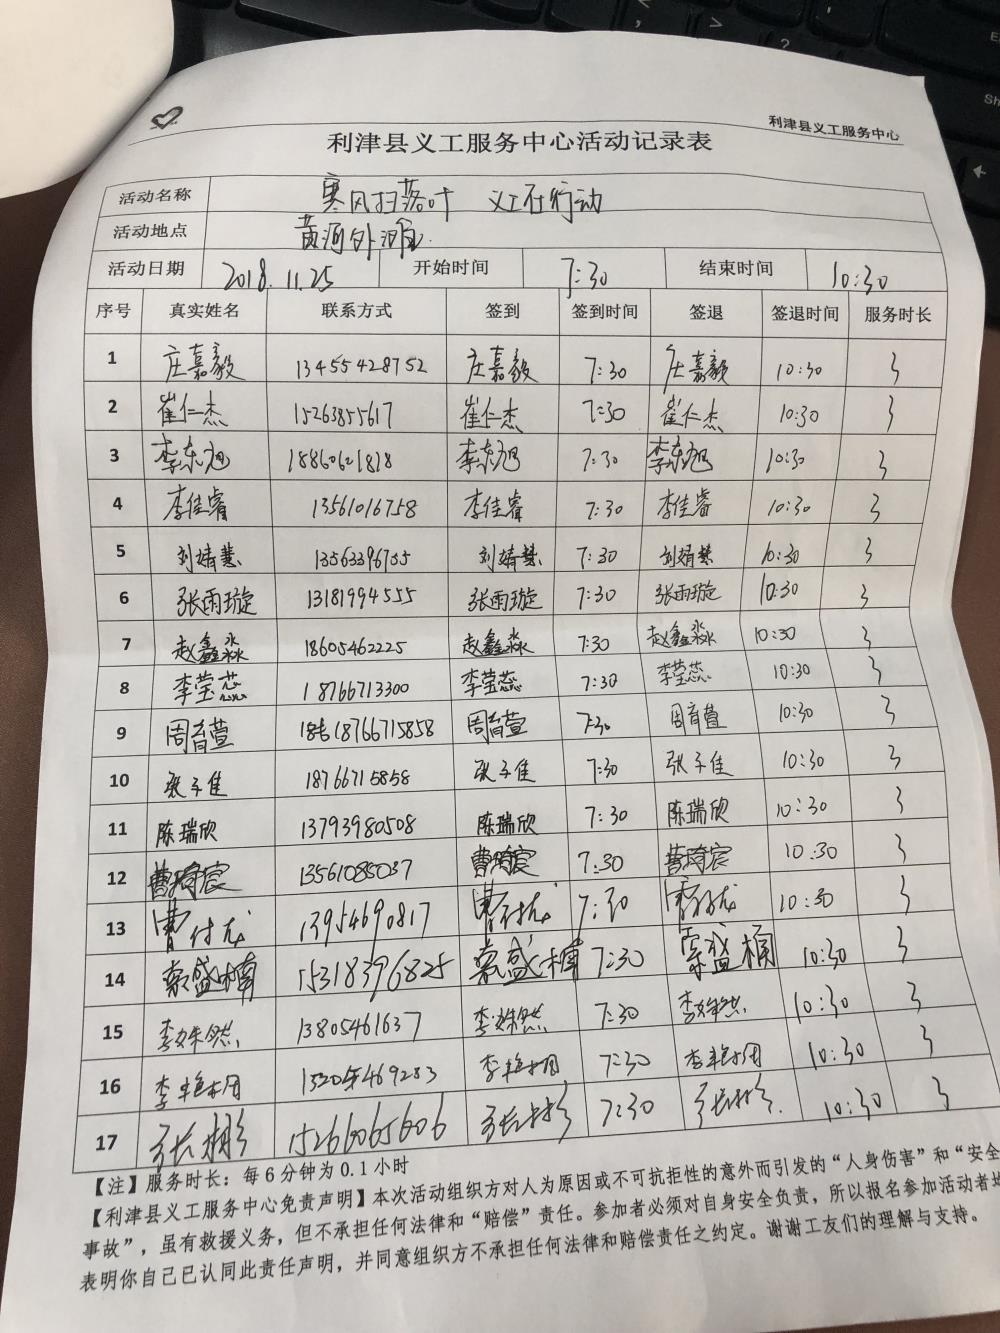 利津县义工服务中心
利津县义工服务中心活动记录表
活动名称 寒风扫落叶 义工在行动
活动地点 黄河外滩
活动日期 2018.11.25 开始时间 7:30 结束时间 10:30
序号 真实姓名 联系方式 签到 签到时间 签退 签退时间 服务时长
1 庄嘉毅 13455428752 庄嘉毅 7:30 庄嘉毅 10:30 3
2 崔仁杰 15263855617 崔仁杰 7:30 崔仁杰 10:30 3
3 李东旭 18860621818 李东旭 7:30 李东旭 10:30 3
4 李佳睿 13561016758 李佳睿 7:30 李佳睿 10:30 3
5 刘婧慧 13563396755 刘婧慧 7:30 刘婧慧 10:30 3
6 张雨璇 13181994555 张雨璇 7:30 张雨璇 10:30 3
7 赵鑫淼 18605462225 赵鑫淼 7:30 赵鑫淼 10:30 3
8 李莹蕊 18766713300 李莹蕊 7:30 李莹蕊 10:30 3
9 周育萱 18766715858 周育萱 7:30 周育萱 10:30 3
10 张子佳 18766715858 张子佳 7:30 张子佳 10:30 3
11 陈瑞欣 13793980508 陈瑞欣 7:30 陈瑞欣 10:30 3
12 曹琦宸 13561085037 曹琦宸 7:30 曹琦宸 10:30 3
13 曹付龙 13954690817 曹付龙 7:30 曹付龙 10:30 3
14 綦盛楠 15318396825 綦盛楠 7:30 綦盛楠 10:30 3
15 李姝然 13805461637 李姝然 7:30 李姝然 10:30 3
16 李艳 7:30 李艳 10:30 3
17 张彬 15266065606 张彬 7:30 张彬 10:30 3
【注】服务时长：每6分钟为0.1小时
【利津县义工服务中心免责声明】本次活动组织方对人为原因或不可抗拒性的意外而引发的“人身伤害”和“安全
事故”，虽有救援义务，但不承担任何法律和“赔偿”责任。参加者必须对自身安全负责，所以报名参加活动者均
表明你自己已认同此责任声明，并同意组织方不承担任何法律和赔偿责任之约定。谢谢工友们的理解与支持。